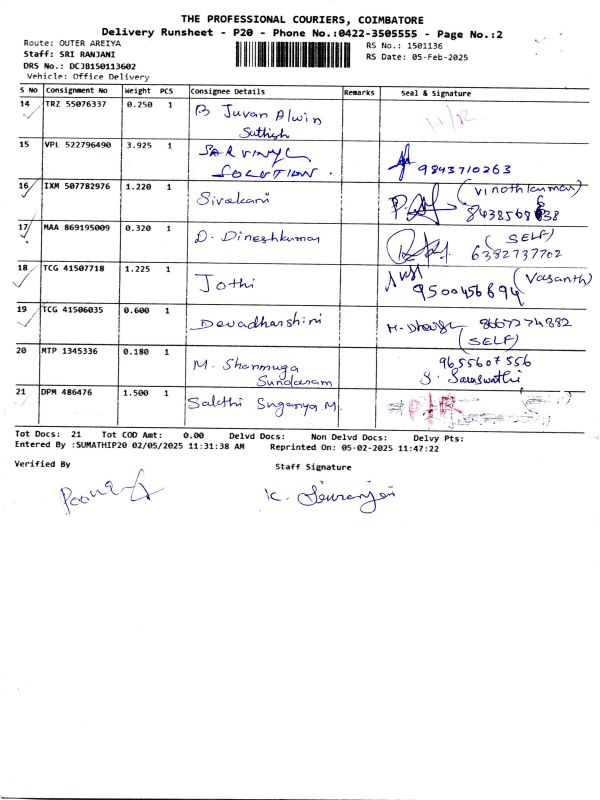 THE PROFESSIONAL COURIERS, COIMBATORE
Delivery Runsheet - P20 - Phone No.:0422-3505555 - Page No.:2
Route: OUTER AREIYA
RS No.: 1501136
Staff: SRI RANJANI
RS Date: 05-Feb-2025
DRS No.: DCJB150113602
Vehicle: Office Delivery
S No Consignment No Weight PCS Consignee Details Remarks Seal & Signature
14 TRZ 55076337 0.250 1 B Juvan Alwin
Sathish
15 VPL 522796490 3.925 1 SAR VINYL
SOLUTION. 9843710263
16 IXM 507782976 1.220 1 Sivakani (Vinothkumar)
17 MAA 869195009 0.320 1 D. Dineshkumar (SELF)
6382737702
18 TCG 41507718 1.225 1 Jothi (Vasanth)
9500456894
19 TCG 41506035 0.600 1 Devadharshini 8667274882
(SELF)
20 MTP 1345336 0.180 1 M. Shanmuga 9655607556
Sundaram S. Saraswathi
21 DPM 486476 1.500 1 Sakthi Suganya M.
Tot Docs: 21 Tot COD Amt: 0.00 Delvd Docs: Non Delvd Docs: Delvy Pts:
Entered By :SUMATHIP20 02/05/2025 11:31:38 AM Reprinted On: 05-02-2025 11:47:22
Verified By Staff Signature